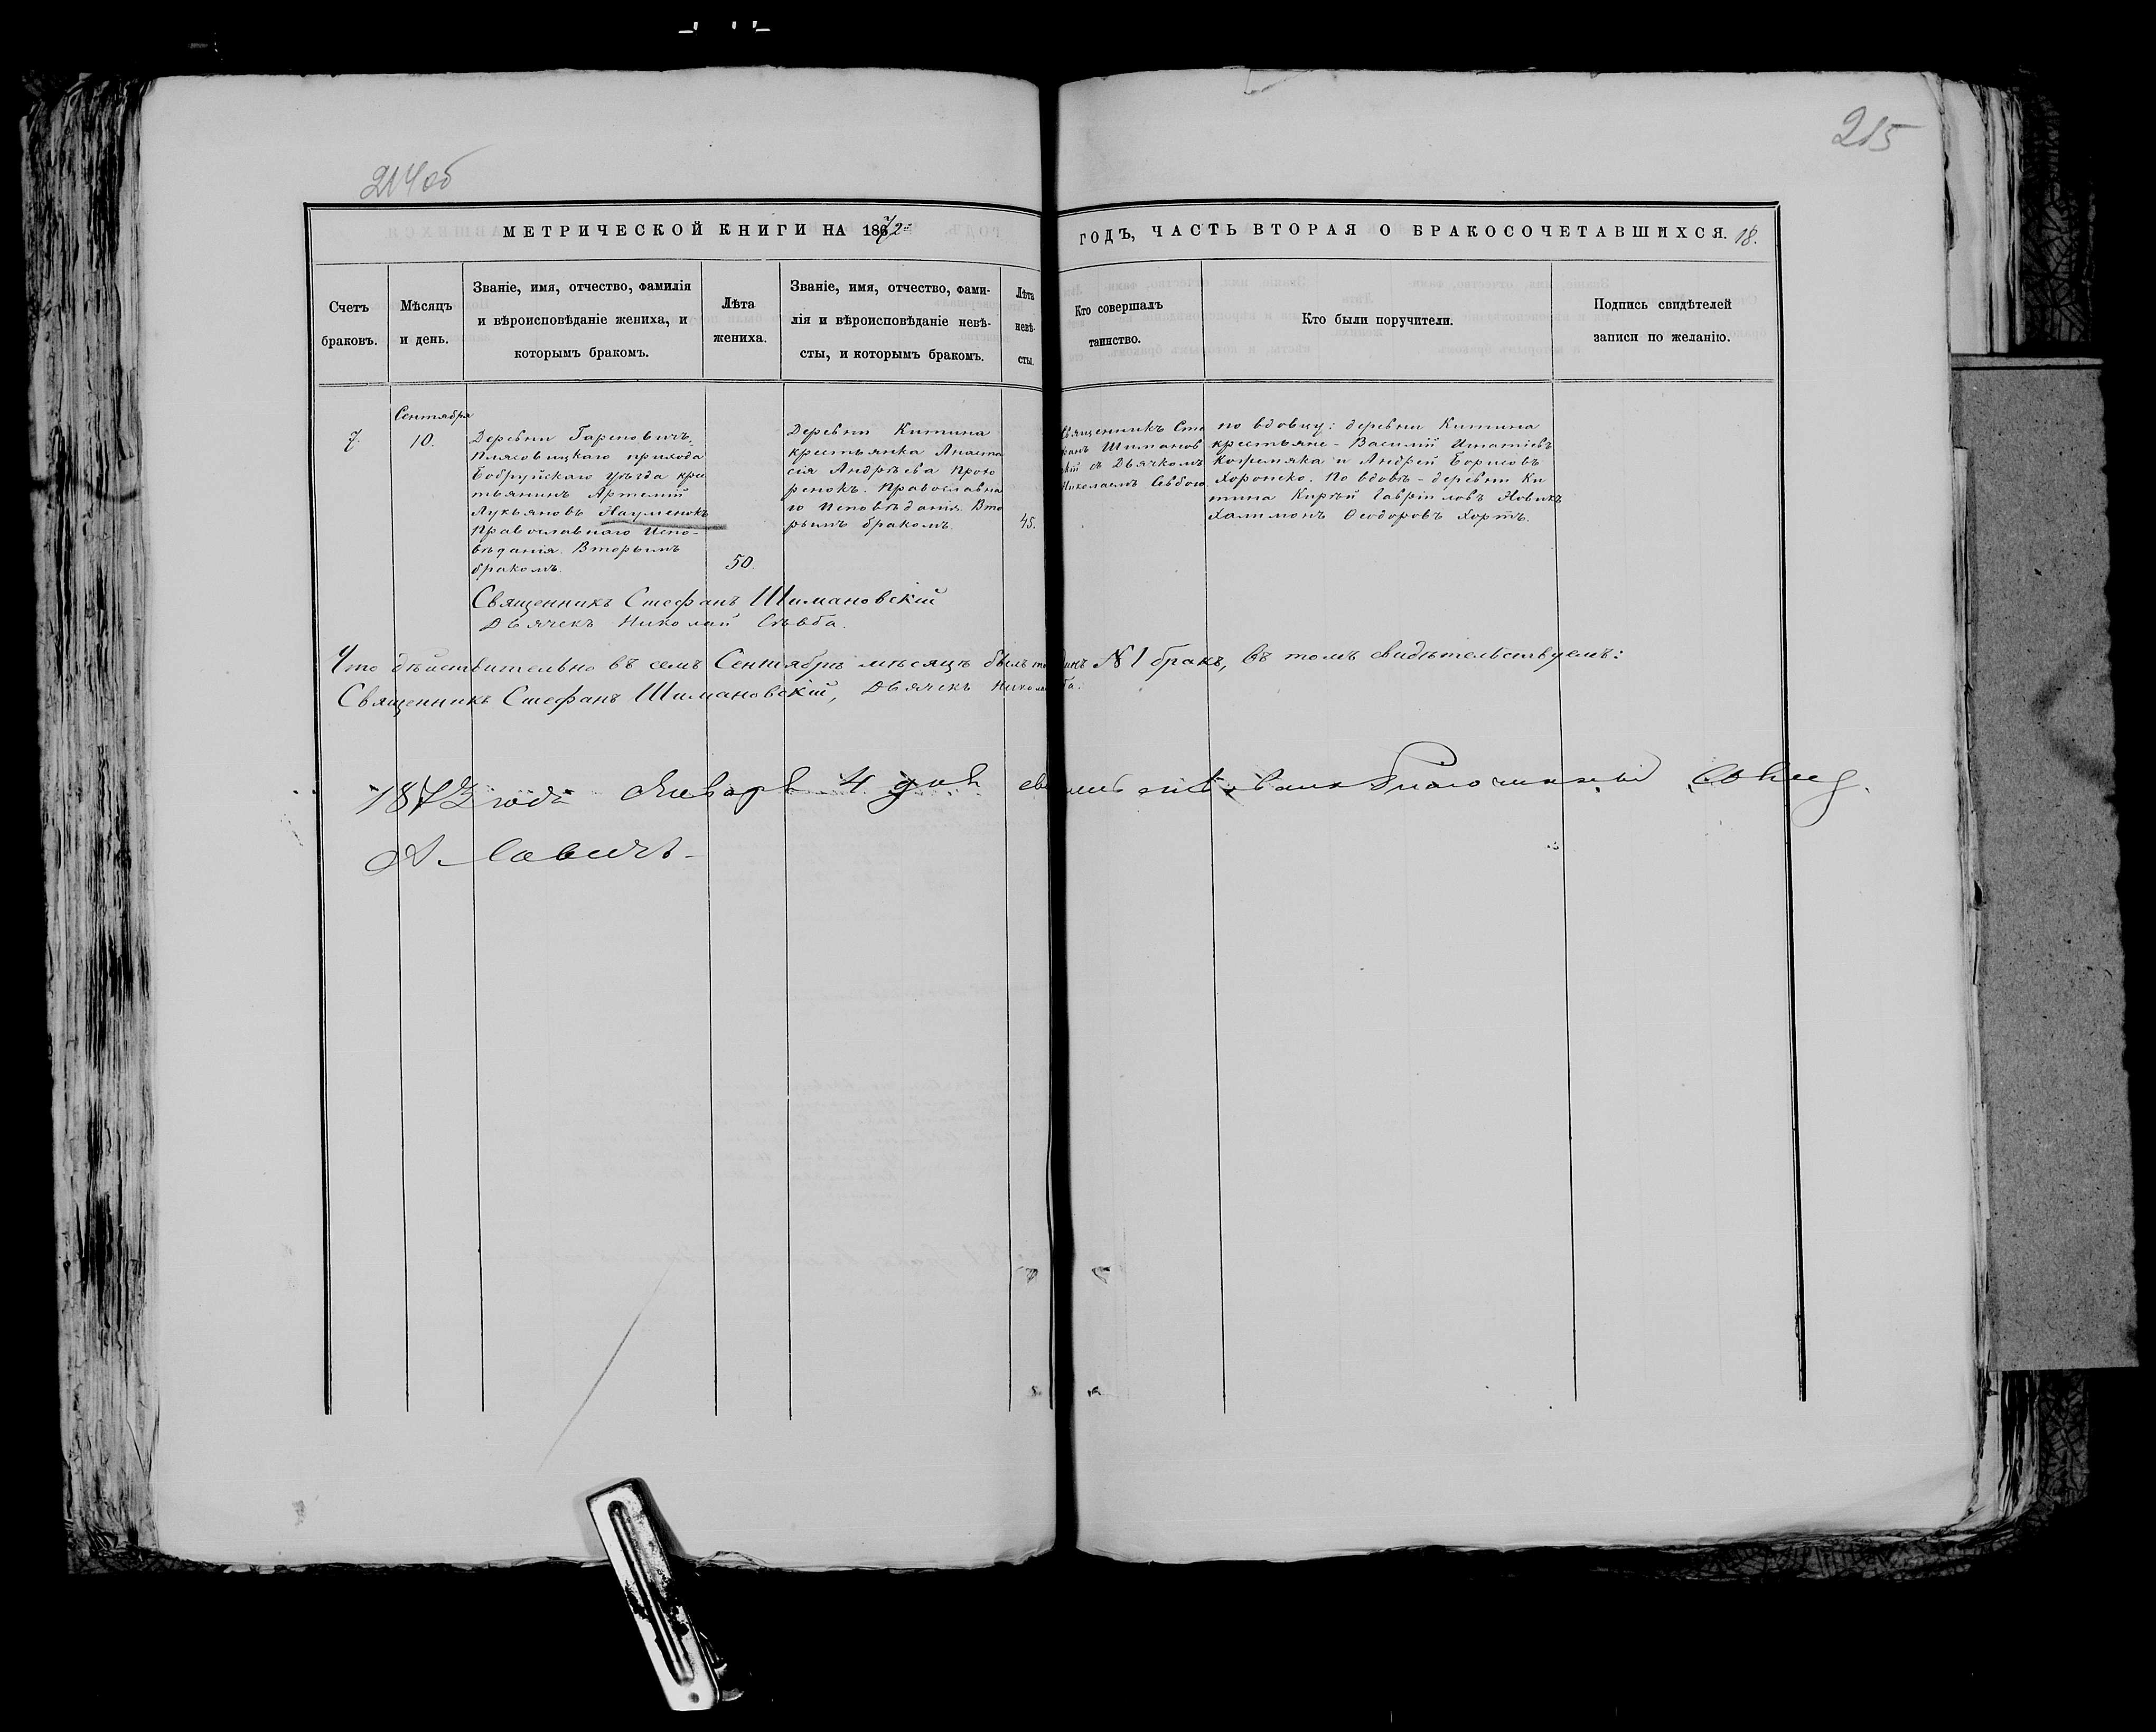 214об
215
МЕТРИЧЕСКОЙ КНИГИ НА 1872
ГОДЪ, ЧАСТЬ ВТОРАЯ О БРАКОСОЧЕТАВШИХСЯ. 18.
Счетъ
браковъ.
Мѣсяцъ
и день.
Званіе, имя, отчество, фамилія
и вѣроисповѣданіе жениха, и
которымъ бракомъ.
Лѣта
жениха.
Званіе, имя, отчество, фами-
лія и вѣроисповѣданіе невѣ-
сты, и которымъ бракомъ.
Лѣта
невѣ-
сты.
Кто совершалъ
таинство.
Кто были поручители.
Подпись свидѣтелей
записи по желанію.
7.
Сентября
10.
Деревни Гареновичъ,
Плясовицкаго прихода
Бобруйскаго уѣзда крес
тьянинъ Артемій
Лукьяновъ Науменокъ
Православнаго Испо-
вѣданія. Вторымъ
бракомъ.
50.
Деревни Китина
крестьянка Анаста
сія Андрѣева Прохо
ренокъ. Православна
го Исповѣданія. Вто
рымъ бракомъ.
45.
Священникъ Сте
фанъ Шиманов
скій съ Дьячкомъ
Николаемъ
по вдовцу: деревни Китина
крестьяне - Василій Игнатіевъ
Кожемяка и Андрей Борисовъ
Хоронеко. По вдовѣ - деревни Ки
тина Кирѣй Гавріиловъ Новикъ
Халимонъ Ѳеодоровъ Хортъ.
Священникъ Стефанъ Шимановскій
Дьячекъ Николай
Что дѣйствительно въ семъ Сентябрѣ мѣсяцѣ былъ № 1 бракъ, въ томъ свидѣтельствуемъ:
Священникъ Стефанъ Шимановскій, Дьячекъ
1873 года Января 4 дня Благочинный
А. Савичъ